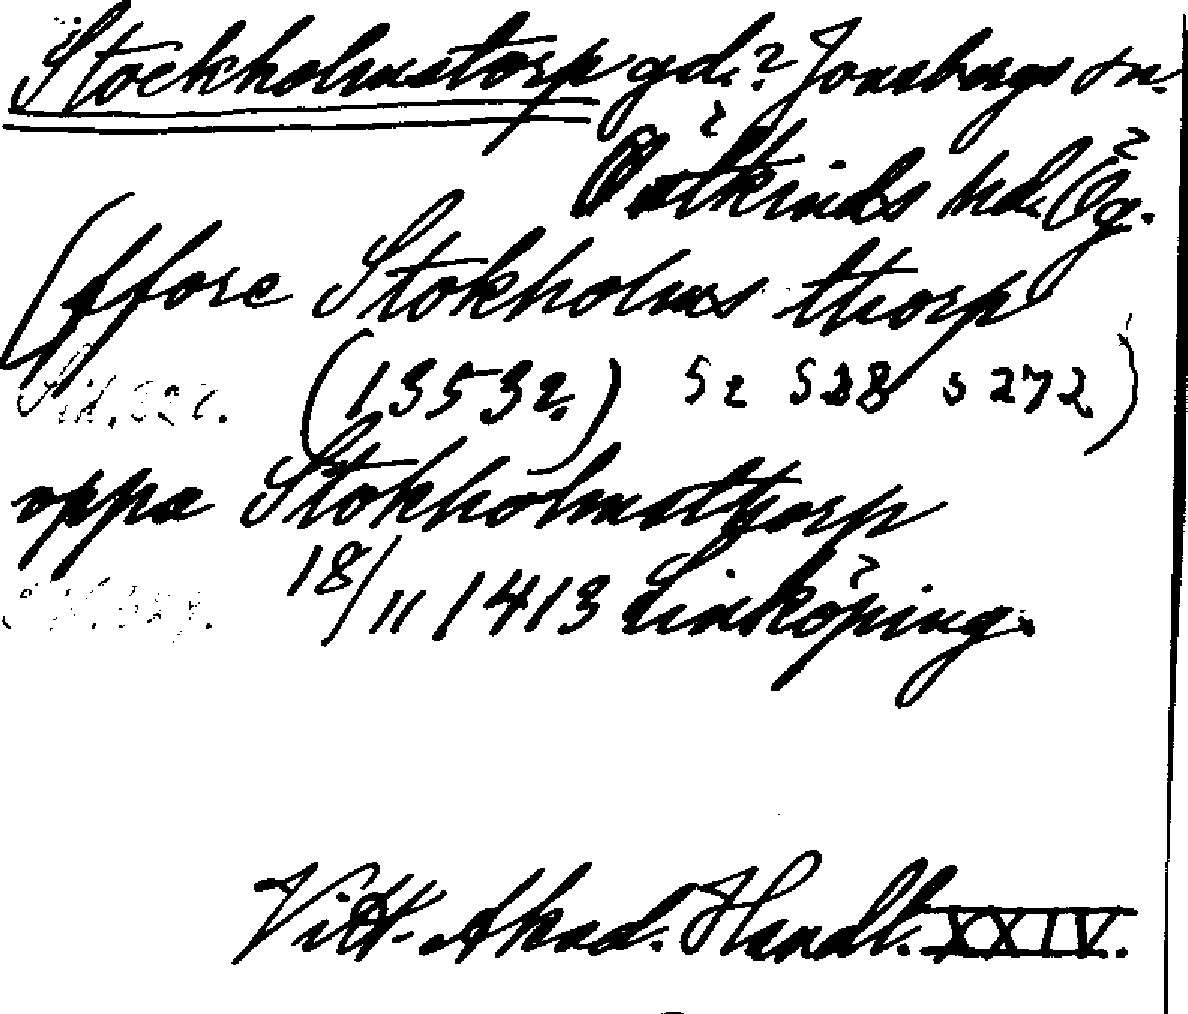 Stockholmstorp gd.? Jonsbergs sn.
Östkinds hd. Ög.
(ffore Stokholms thorp
Sid. 327. (1353?) S 2 S 328 s 272)
oppa Stokholmsthorp
18/11 1413 Linköping.
Vitt. Akad. Handl. XXIV.